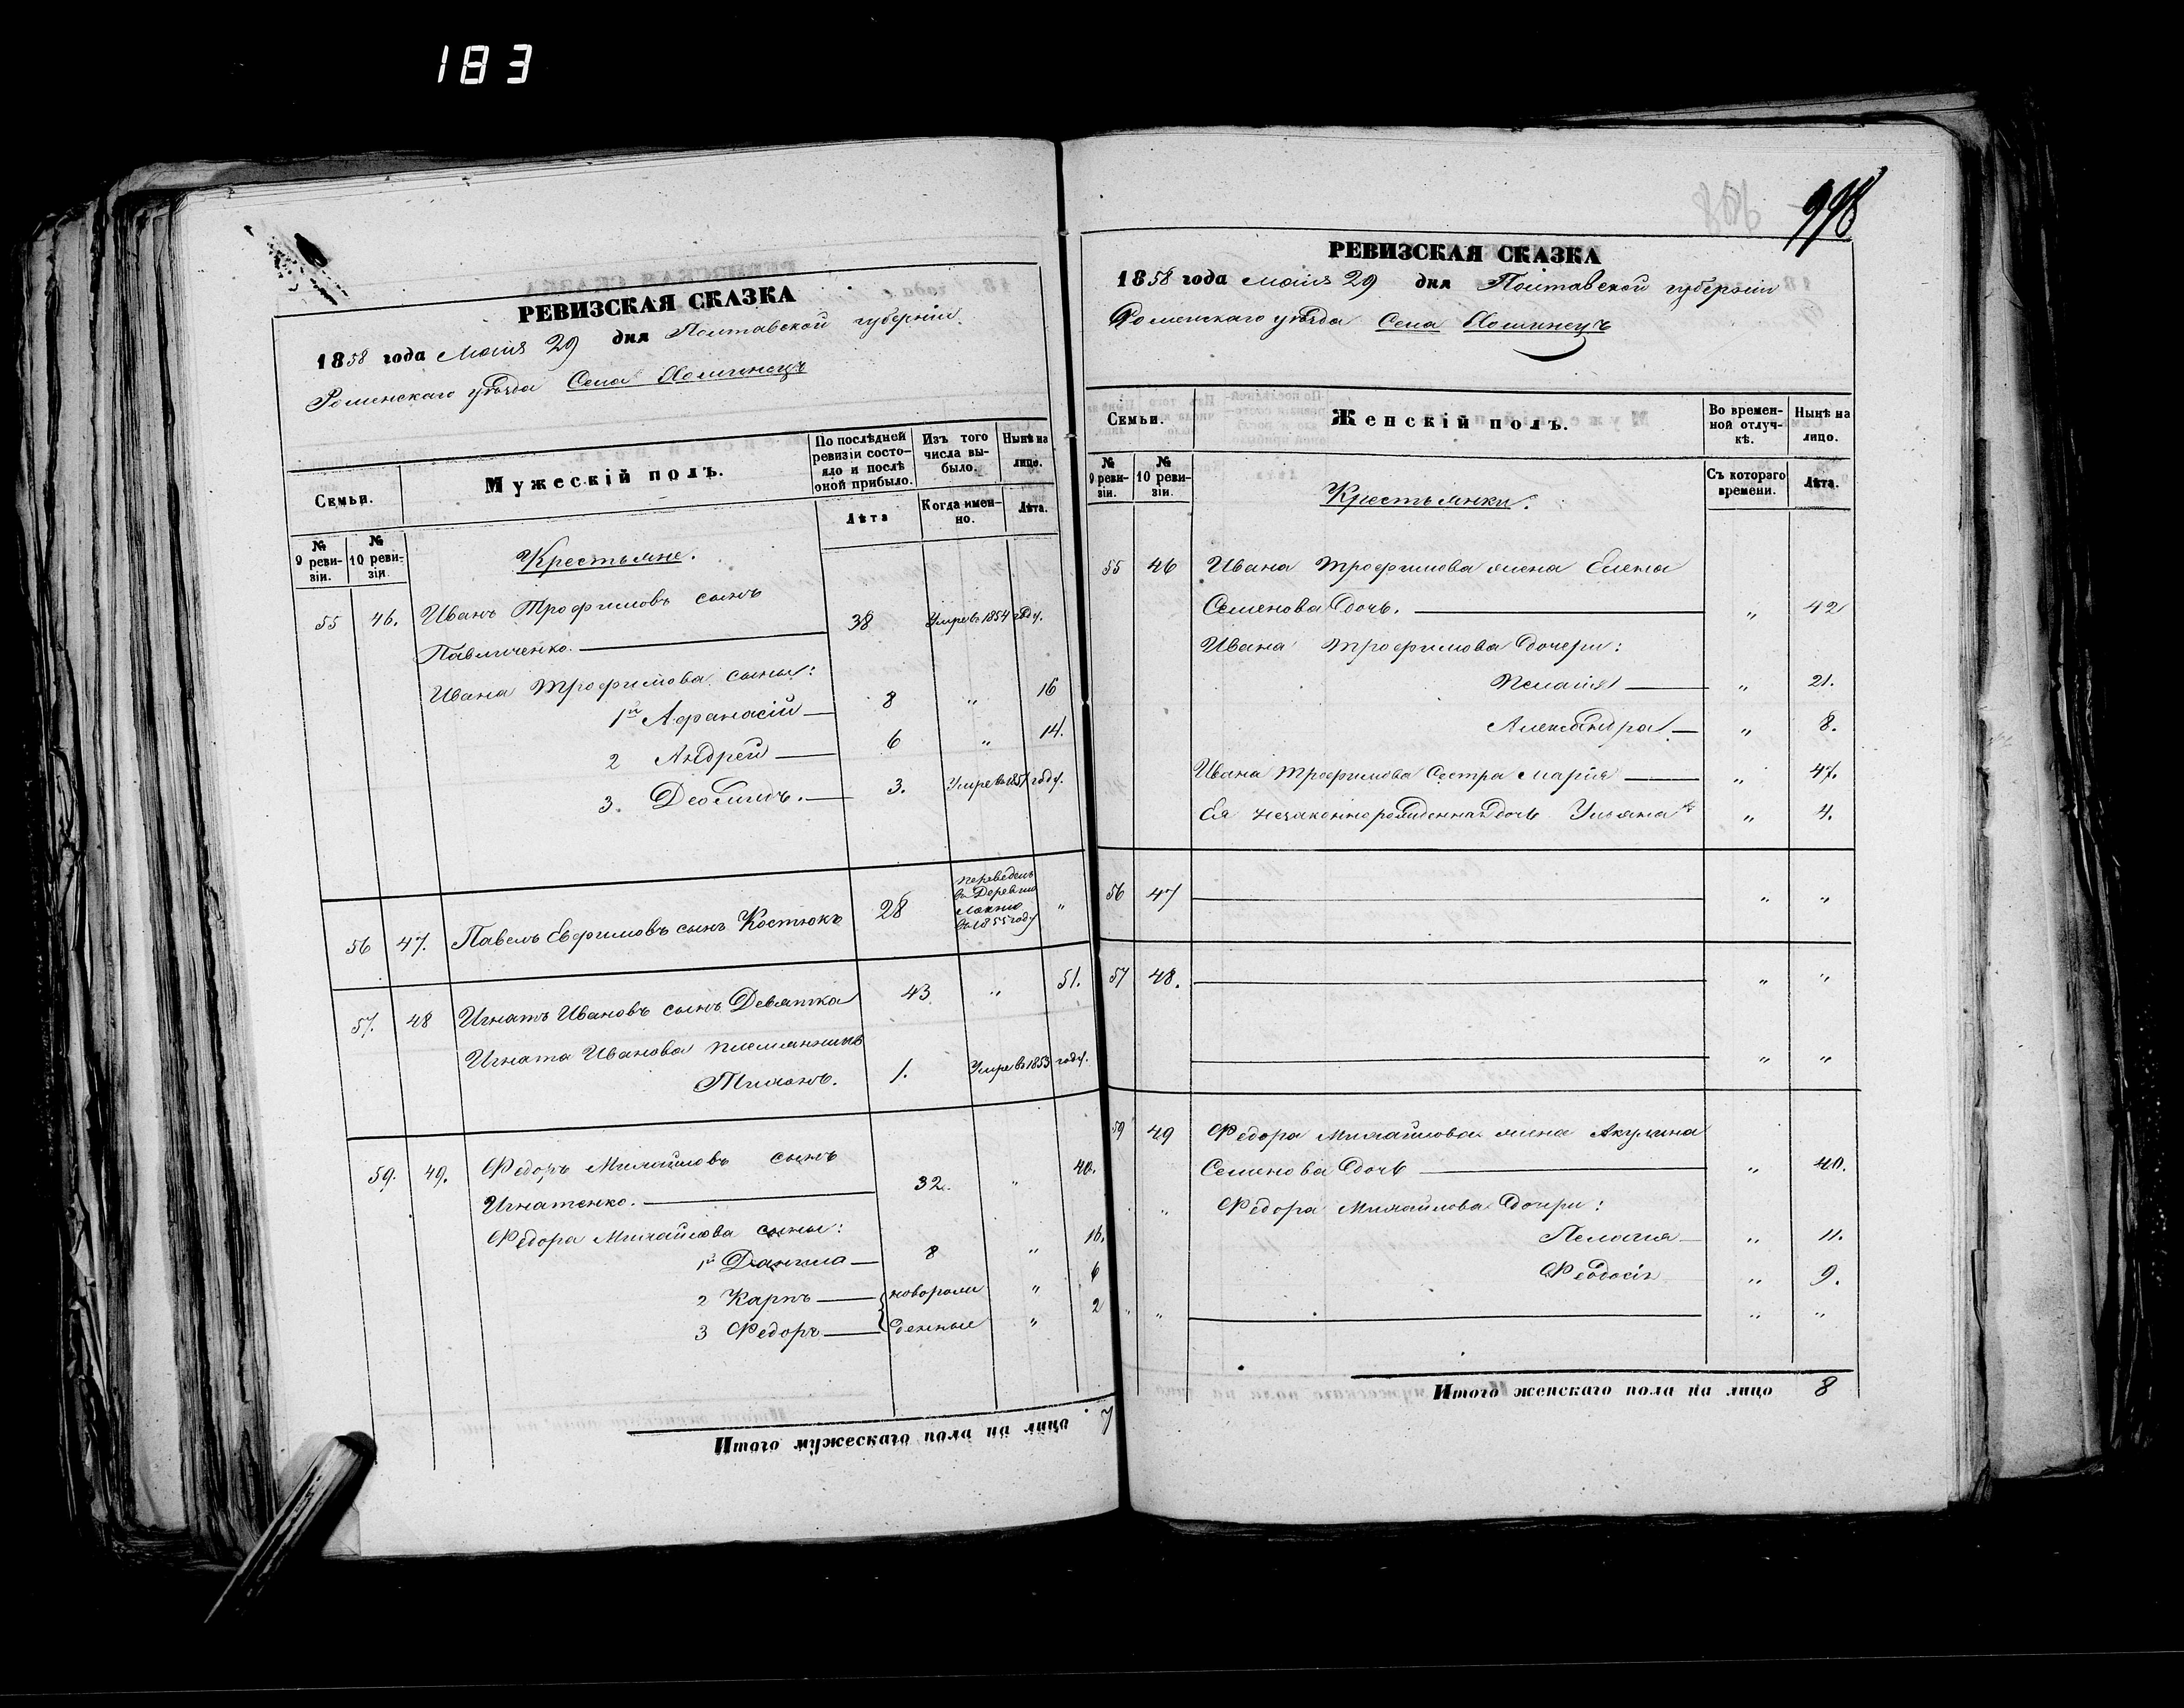 183
РЕВИЗСКАЯ СКАЗКА
1858 года Мая 29 дня Полтавской губерніи
Роменскаго уѣзда Села
Семьи.
Мужескій полъ.
По послѣдней ревизіи состояло и послѣ оной прибыло.
Изъ того числа выбыло.
Нынѣ на лицо.
№ 9 ревизіи.
№ 10 ревизіи.
Лѣта
Когда именно.
Лѣта.
Крестьяне.
55 46. Иванъ Трофимовъ сынъ
Павличенко. 38 Умре въ 1854 году.
Ивана Трофимова сыны:
1й Афанасій 8 „ 16
2 Андрей 6 „ 14.
3. 3. Умре въ году.
56 47. Павелъ Евфимовъ сынъ Костюкъ 28 переведенъ въ Деревню въ 1855 году „
57. 48 Игнатъ Ивановъ сынъ Девятка 43 „ 51.
Игната Иванова племянникъ
Тихонъ. 1. Умре въ 1853 году.
59. 49. Федоръ Михайловъ сынъ
Игнатенко. 32. „ 40.
Федора Михайлова сыны:
1й Данила 8 „ 16.
2 Карпъ новорож „ 6
3 Федоръ денные „ 2
Итого мужескаго пола на лицо 7
РЕВИЗСКАЯ СКАЗКА
1858 года Мая 29 дня Полтавской губерніи
Роменскаго уѣзда Села
Семьи.
Женскій полъ.
Во временной отлучкѣ.
Нынѣ на лицо.
№ 9 ревизіи.
№ 10 ревизіи.
Съ котораго времени.
Лѣта.
Крестьянки.
55 46 Ивана Трофимова жена Елена
Семенова дочь. „ 42
Ивана Трофимова дочери:
Пелагія „ 21.
Александра „ 8.
Ивана Трофимова сестра Марія „ 47.
Ея незаконнорожденная дочь Ульяна „ 4.
56 47 „ „
57 48. „ „
„ „
59 49 Федора Михайлова жена Акулина
Семенова дочь „ 40.
„ Федора Михайлова дочери:
Пелагія „ 11.
Феодосія „ 9.
„ „ „ „
Итого женскаго пола на лицо 8